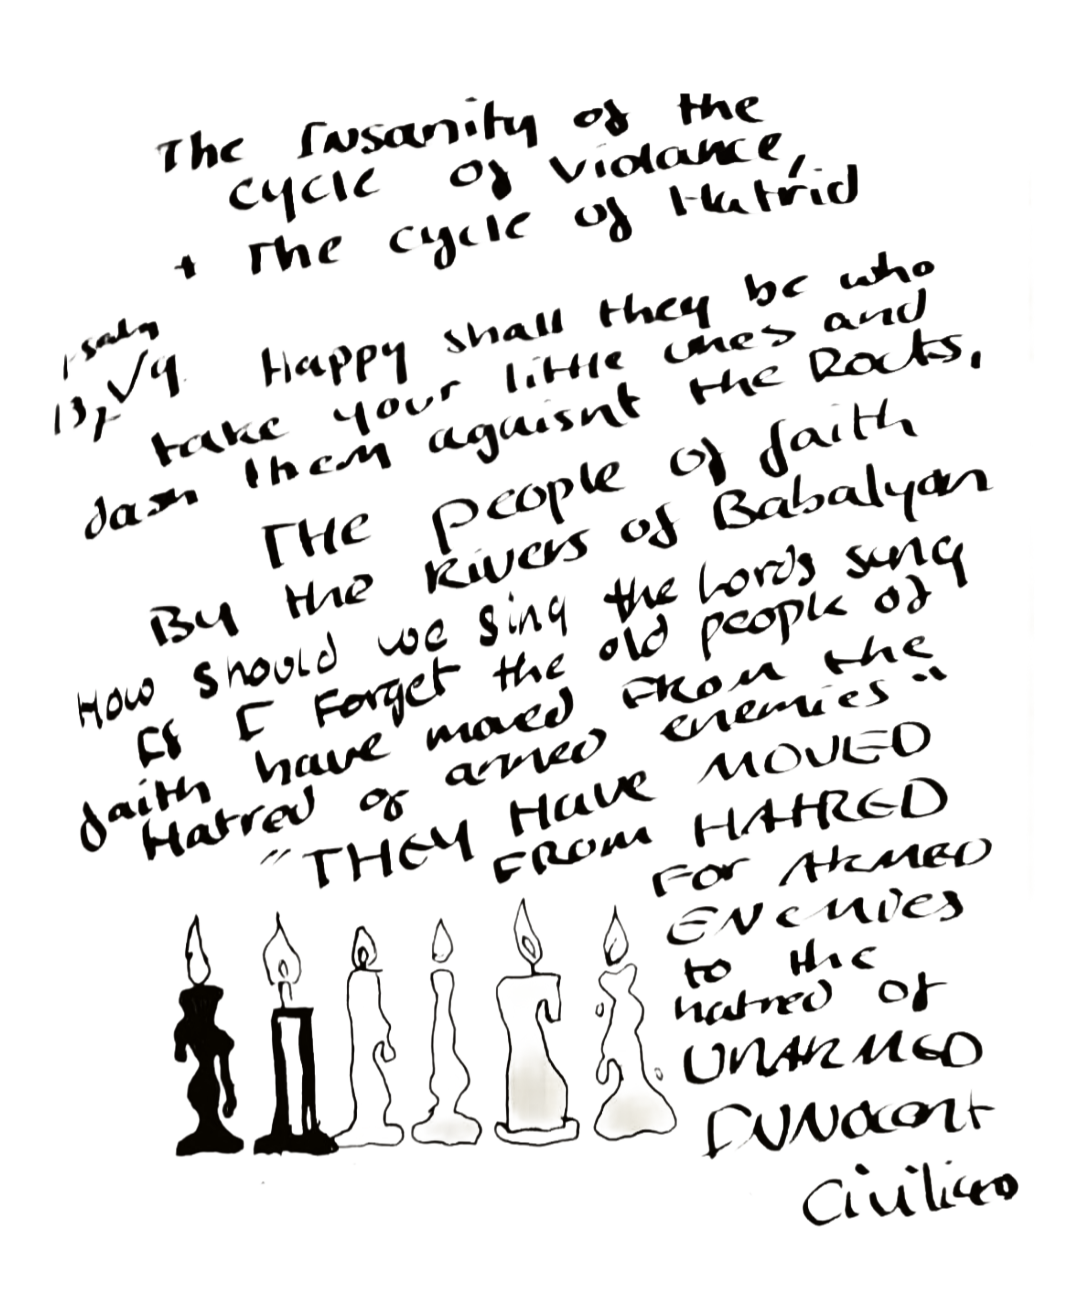 The Insanity of the
cycle of violance,
+ The cycle of Hatrid
Happy shall they be who
take your little ones and
dash them agaisnt the Rocks,
THE People of faith
By the Rivers of Babalyon
How should we sing the Lords sung
If I Forget the old people of
faith have moved From the
Hatred of armed enemies"
"THEY Have MOVED
FROM HATRED
For ARMED
ENEMies
to the
hatred of
UNARMED
INNocent